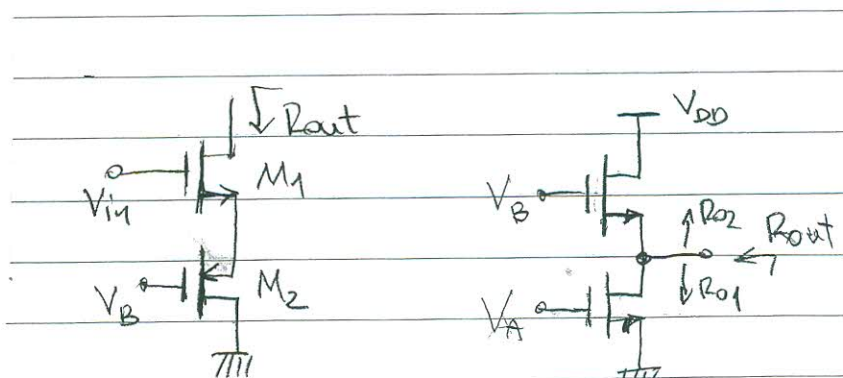 Rout
M1
Vin
VB
M2
VDD
VB
RO2
Rout
RO1
VA